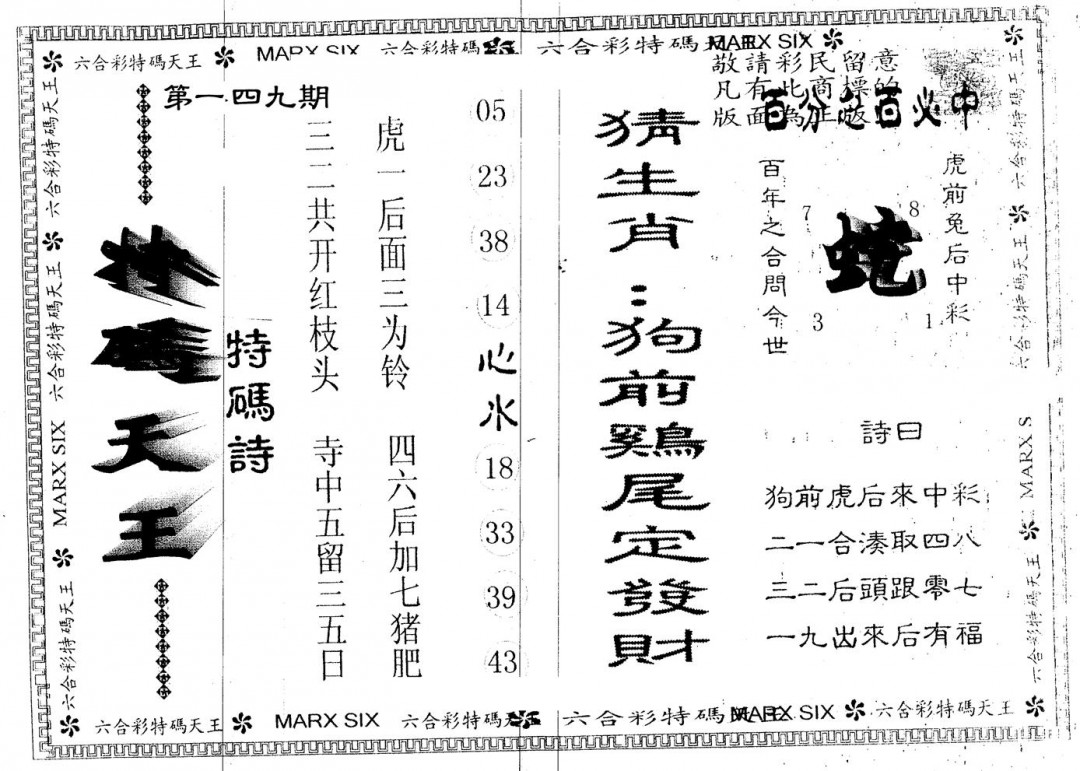 六合彩特碼天王 MARX SIX 六合彩特碼 六合彩特碼 MARX SIX
敬請彩民留意
凡有此商標的
版面為正版
百分之百必中
第一四九期
特碼天王
特碼詩
三二共开红枝头 寺中五留三五日
虎一后面三为铃 四六后加七猪肥
05
23
38
14
心水
18
33
39
43
猜生肖：狗前鷄尾定發財
百年之合問今世
7
8
蛇
3
1
虎前兔后中彩
詩曰
狗前虎后來中彩
二一合湊取四八
三二后頭跟零七
一九出來后有福
六合彩特碼天王 六合彩特碼天王 MARX SIX 六合彩特碼天王
六合彩特碼天王 六合彩特碼天王 MARX S 六合彩特碼天王
六合彩特碼天王 MARX SIX 六合彩特碼天 六合彩特碼 MARX SIX 六合彩特碼天王